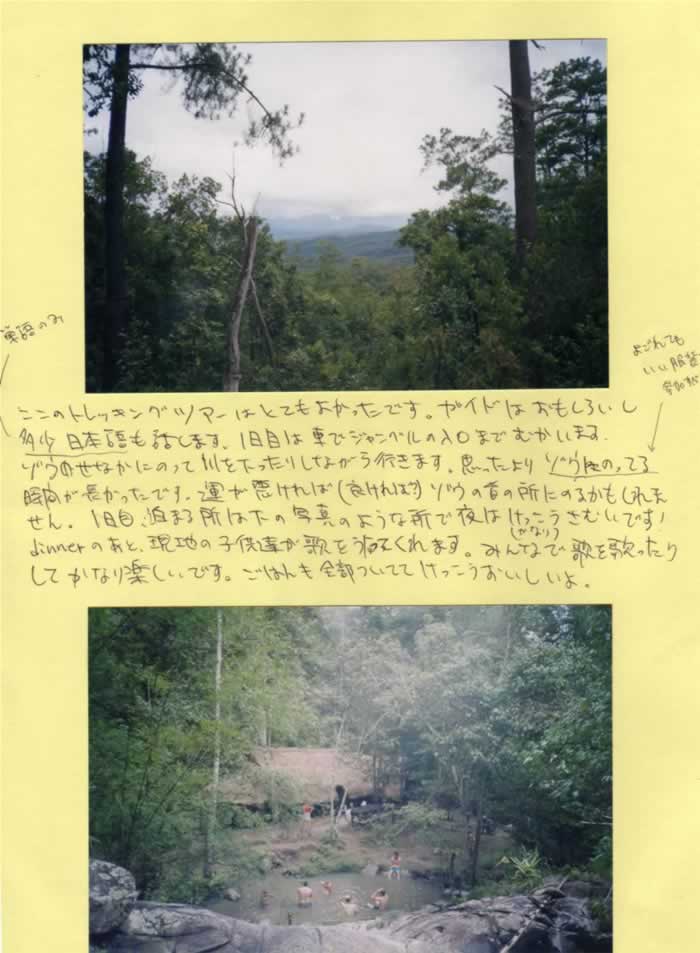 単語のみ
よごれても
いい服装
ここのトレッキングツアーはとてもよかったです。ガイドはおもしろいし
多少日本語も話します。1日目は車でジャングルの入口までむかいます。
ゾウのせなかにのって川をわたったりしながら行きます。思ったよりゾウにのってる
時間が長かったです。運が悪ければ(良ければ?)ゾウの首の所にのるかもしれま
せん。1日目、泊まる所は下の写真のような所で夜はけっこうさむいです!
(かなり)
dinnerのあと、現地の子供達が歌をうたってくれます。みんなで歌を歌ったり
してかなり楽しいです。ごはんも全部ついててけっこうおいしいよ。